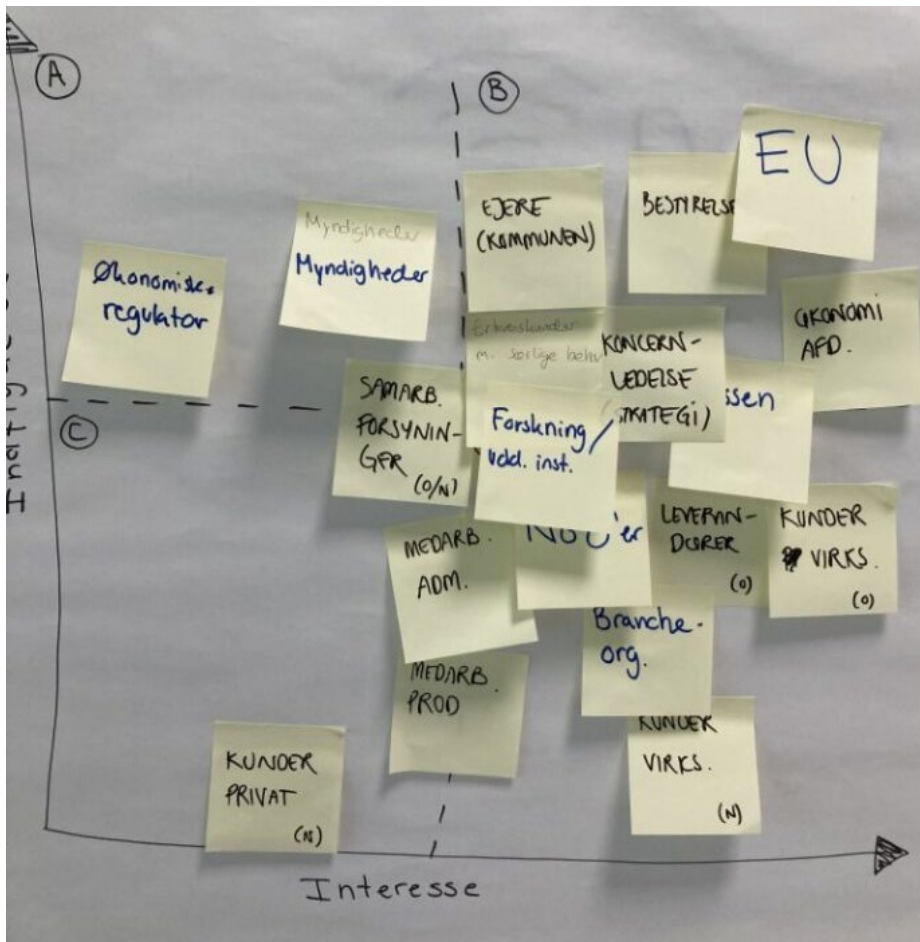 A
B
EU
EJERE
(KOMMUNEN)
BESTYRELSE
Myndigheder
Myndigheder
Økonomisk
regulator
ØKONOMI
AFD.
Erhvervskunder
m. særlige behov
KONCERN-
LEDELSE
(STRATEGI)
ssen
SAMARB.
FORSYNIN-
GER
(O/N)
Forskning/
udd. inst.
C
NGO'er
LEVERAN-
DØRER
(O)
KUNDER
VIRKS.
(O)
MEDARB.
ADM.
Branche-
org.
MEDARB.
PROD
KUNDER
VIRKS.
(N)
KUNDER
PRIVAT
(N)
Interesse